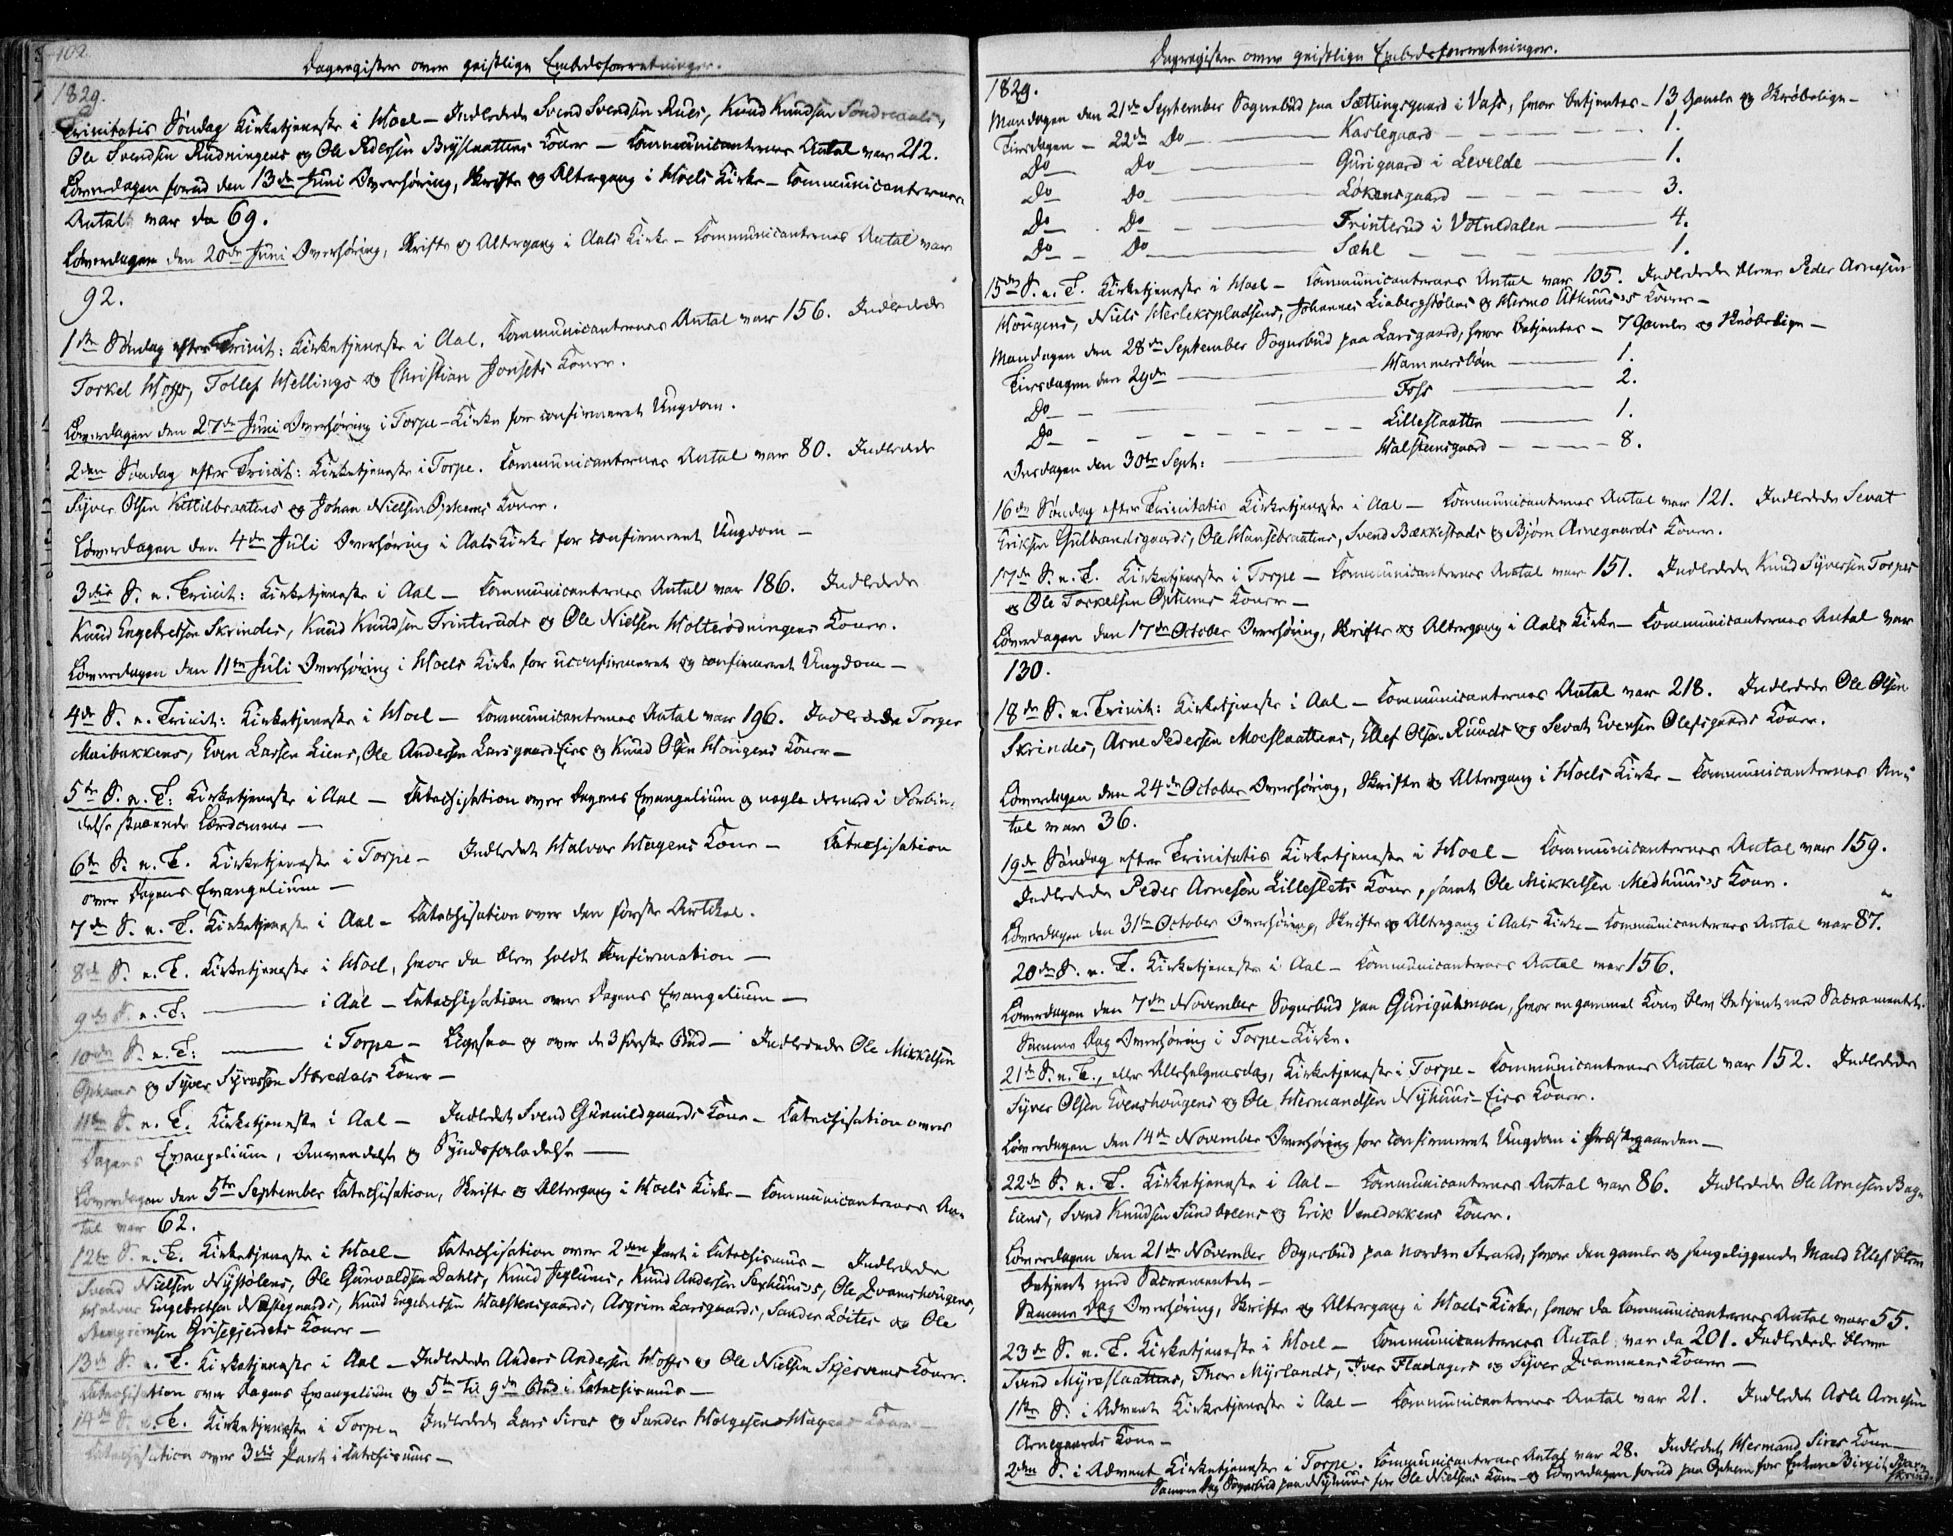 102
Dagregister over geistlige Embedsforretninger.
1829.
Trinitatis Søndag Kirketjeneste i Hoel – Indledede Svend Svendsen Rues, Knud Knudsen
Ole Svendsen Rudningens og Ole Pedersen Brøslaattens Koner – Communicanternes Antal var 212.
Løverdagen forud den 13de Juni Overhøring, Skrifte og Altergang i Hoels Kirke – Communicanternes
Antal var da 69.
Løverdagen den 20de Juni Overhøring, Skrifte og Altergang i Aals Kirke – Communicanternes Antal var
92.
1ste Søndag efter Trinit: Kirketjeneste i Aal. Communicanternes Antal var 156. Indledede
Torkel Hoffs, Tollef Hellings og Christian Jonsets Koner.
Løverdagen den 27de Juni Overhøring i Torpe-Kirke for confirmeret Ungdom.
2den Søndag efter Trinit: Kirketjeneste i Torpe. Communicanternes Antal var 80. Indledede
Syver Olsen Kittilbraatens og Johan Nielsen Opheims Koner.
Løverdagen den 4de Juli Overhøring i Aals Kirke for confirmeret Ungdom –
3die S. e. Trinit: Kirketjeneste i Aal – Communicanternes Antal var 186. Indledede
Knud Engebretsen Skrindes, Knud Knudsen Trinteruds og Ole Nielsen Holterødningens Koner.
Løverdagen den 11te Juli Overhøring i Hoels Kirke for uconfirmeret og confirmeret Ungdom –
4de S. e. Trinit: Kirketjeneste i Hoel – Communicanternes Antal var 196. Indledede Torger
Maibakkens, Even Larsen Liens, Ole Andersen Larsgaard-Eies og Knud Olsen Hougens Koner –
5te S. e. T: Kirketjeneste i Aal – Catechisation over Dagens Evangelium og nogle dermed i Forbin-
delse staaende Lærdomme –
6te S. e. T. Kirketjeneste i Torpe – Indledet Halvor Hagens Kone – Catechisation
over Dagens Evangelium –
7de S. e. T. Kirketjeneste i Aal – Catechisation over den første Artikel.
8de S. e. T. Kirketjeneste i Hoel, hvor da blev holdt Confirmation –
9de S. e. T: —— i Aal – Catechisation over Dagens Evangelium –
10de S. e. T: —— i Torpe – Ligesaa og over de 3 første Bud – Indledede Ole Mikkelsen
Opheims og Syver Syversen Koner –
11te S. e. T. Kirketjeneste i Aal – Indledet Svend Gunnildgaards Kone – Catechisation over
Dagens Evangelium, Anvendelse og Syndsforladelse –
Løverdagen den 5te September Catechisation, Skrifte og Altergang i Hoels Kirke – Communicanternes An-
tal var 62.
12te S. e. T. Kirketjeneste i Hoel – Catechisation over 2den Part i Catechismus – Indledede
Svend Nielsen Nystølens, Ole Gunvaldsen Dahls, Knud Jeglums, Knud Andersen, Ole Qvamshougens,
Engebretsen Næstegaards, Knud Engebretsen Halstensgaards, Asgrim Larsgaards, Sander Løites og Ole
Grisegjerdets Koner –
13de S. e. T. Kirketjeneste i Aal – Indledede Anders Andersen Hoffs og Ole Nielsen Skjervems Koner.
Catechisation over Dagens Evangelium og 5te til 9de Bud i Catechismus –
14de S. e. T. Kirketjeneste i Torpe – Indledede Lars Sires og Sander Holgesen Hagens Koner
Catechisation over 3die Part i Catechismus –
Dagregister over geistlige Embedsforretninger.
1829.
Mandagen den 21de September Sognebud paa Sættingsgaard i Vats, hvor betjentes – 13 Gamle og Skrøbelige –
Tirsdagen – 22de Do — Kaslegaard — 1.
Do — Do — Gurigaard i Levelde — 1.
Do Do — Løkensgaard — 3.
Do – Do – Trinterud i Votnedalen — 4.
Do – Do — Sæhl — 1.
15de S. e. T. Kirketjeneste i Hoel – Communicanternes Antal var 105. Indledede bleve Peder Arnesen
Hougens, Niels Herleikspladsens, Johannes Liabergstølens og Hermo Uthuus's Koner –
Mandagen den 28de September Sognebud paa Larsgaard, hvor betjentes – 7 Gamle og Skrøbelige –
Tirsdagen den 29de — Hammersbøen — 1.
Do – Foss — 2.
Do – Lilleslaatten — 1.
Onsdagen den 30te Sept: — Halsteensgaard — 8.
16de Søndag efter Trinitatis Kirketjeneste i Aal – Communicanternes Antal var 121. Indledede Sevat
Eriksen Gulbrandsgaards, Ole Hansebraatens, Svend Bækkestads og Bjørn Arnegaards Koner.
17de S. e. T. Kirketjeneste i Torpe – Communicanternes Antal var 151. Indledede Knud Syversen Torpes
og Ole Torkelsen Opheims Koner –
Løverdagen den 17de October Overhøring, Skrifte og Altergang i Aals Kirke – Communicanternes Antal var
130.
18de S. e. Trinit: Kirketjeneste i Aal – Communicanternes Antal var 218. Indledede Ole Olsen
Skrindes, Arne Pedersen Moeslaattens, Ellef Olsen Ruuds og Sevat Evensen Olefsgaards Koner.
Løverdagen den 24de October Overhøring, Skrifte og Altergang i Hoels Kirke – Communicanternes An-
tal var 36.
19de Søndag efter Trinitatis Kirketjeneste i Hoel – Communicanternes Antal var 159.
Indledede Peder Arnesen Lilleslets Kone, samt Ole Mikkelsen Medhuus's Kone.
Løverdagen den 31te October Overhøring, Skrifte og Altergang i Aals Kirke – Communicanternes Antal var 87.
20de S. e. T. Kirketjeneste i Aal – Communicanternes Antal var 156.
Løverdagen den 7de November Sognebud paa Gurigutmoen, hvor en gammel Kone blev betjent med Sacramentet.
Samme Dag Overhøring i Torpe-Kirke.
21de S. e. T., eller Allehelgensdag, Kirketjeneste i Torpe – Communicanternes Antal var 152. Indledede
Syver Olsen Evenshougens og Ole Hermandsen Nyhuus-Eies Koner.
Løverdagen den 14de November Overhøring for confirmeret Ungdom i Præstegaarden –
22de S. e. T. Kirketjeneste i Aal – Communicanternes Antal var 86. Indledede Ole Arnesen
Eiens, Svend Knudsen Sundbreens og Erik Veneldokkens Koner.
Løverdagen den 21de November Sognebud paa nordre Strand, hvor den gamle og sengeliggende Mand Ellef blev
betjent med Sacramentet –
Samme Dag Overhøring, Skrifte og Altergang i Hoels Kirke, hvor da Communicanternes Antal var 55.
23de S. e. T. Kirketjeneste i Hoel – Communicanternes Antal var da 201. Indledede bleve
Svend Myreslaattens, Thor Myrlands, Iver Fladagers og Syver Qvammens Koner –
1ste S. i Advent Kirketjeneste i Aal – Communicanternes Antal var 21. Indledet Asle Arnesen
Arnegaards Kone –
2den S. i Advent Kirketjeneste i Torpe. Communicanternes Antal var 28. Indledet Hermand Sires Kone –
Samme Dag Sognebud paa Nyhuus for Ole Nielsens Kone – og Løverdagen forud paa Opheim for Enken Birgit